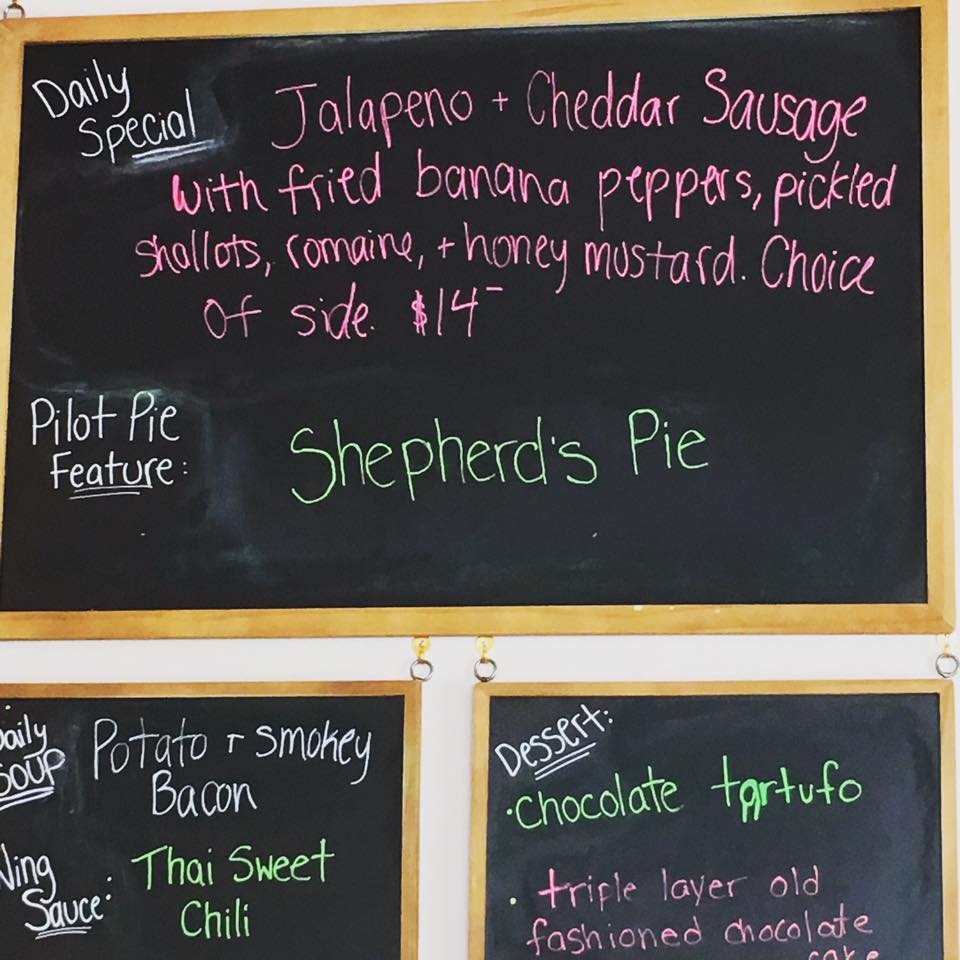 Daily
Special
Jalapeno + Cheddar Sausage
with fried banana peppers, pickled
shallots, romaine, + honey mustard. Choice
of side. $14-
Pilot Pie
Feature:
Shepherd's Pie
Daily
Soup
Potato + smokey
Bacon
Wing
Sauce:
Thai Sweet
Chili
Dessert:
·chocolate tartufo
· triple layer old
fashioned chocolate
cake